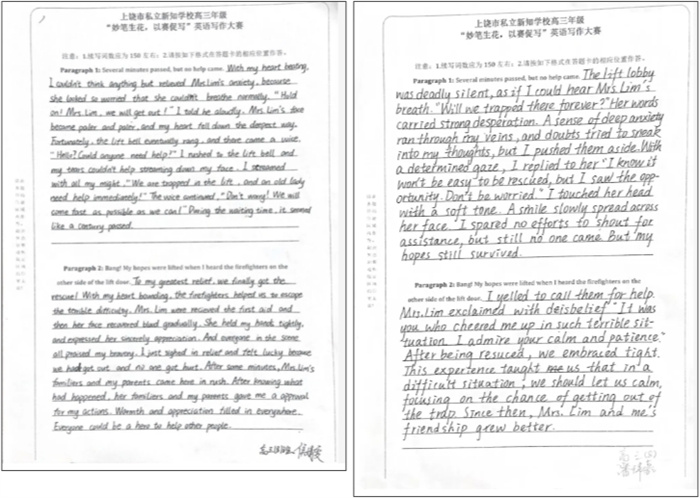 上饶市私立新知学校高三年级
“妙笔生花，以赛促写”英语写作大赛
注意：1.续写词数应为 150 左右；2.请按如下格式在答题卡的相应位置作答。
Paragraph 1: Several minutes passed, but no help came. With my heart beating,
I couldn't think anything but relieved Mrs Lim's anxiety, because
she looked so worried that she couldn't breathe normally. "Hold
on! Mrs. Lim, we will get out!" I told he aloudly. Mrs Lim's face
became paler and paler, and my heart fell down the deepest way.
Fortunately, the lift bell eventually rang, and there came a voice.
"Hello! Could anyone need help?" I rushed to the lift bell and
my tears couldn't help streaming down my face. I streamed
with all my might, "We are trapped in the lift, and an old lady
need help immediately!" The voice continued, "Don't worry! We will
come fast as possible as we can!" During the waiting time, it seemed
like a century passed.
Paragraph 2: Bang! My hopes were lifted when I heard the firefighters on the
other side of the lift door. To my greatest relief, we finally got the
rescue! With my heart bounding, the firefighters helped us to escape
the terrible difficulty. Mrs. Lim were received the first aid and
then her face recovered blood gradually. She held my hands tightly,
and expressed her sincerely appreciation. And everyone in the scene
all praised my bravery. I just sighed in relief and felt lucky because
we had got out and no one got hurt. After some minutes, Mrs Lim's
familiers and my parents came here in rush. After knowing what
had happened, her familiers and my parents gave me a approval
for my actions. Warmth and appreciation filled in everywhere.
Everyone could be a hero to help other people.
上饶市私立新知学校高三年级
“妙笔生花，以赛促写”英语写作大赛
注意：1.续写词数应为 150 左右；2.请按如下格式在答题卡的相应位置作答。
Paragraph 1: Several minutes passed, but no help came. The lift lobby
was deadly silent, as if I could hear Mrs Lim's
breath. "Will we trapped there forever?" Her words
carried strong desperation. A sense of deep anxiety
ran through my veins, and doubts tried to sneak
into my thoughts, but I pushed them aside. With
a determined gaze, I replied to her "I know it
won't be easy to be rescued, but I saw the opp-
ortunity. Don't be worried." I touched her head
with a soft tone. A smile slowly spread across
her face." I spared no efforts to shout for
assistance, but still no one came. But my
hopes still survived.
Paragraph 2: Bang! My hopes were lifted when I heard the firefighters on the
other side of the lift door. I yelled to call them for help.
Mrs. Lim exclaimed with deisbelief "It was
you who cheered me up in such terrible sit-
uation. I admire your calm and patience."
After being resuced, we embraced tight.
This experience taught us that in a
difficult situation, we should let us calm,
focusing on the chance of getting out of
the trap. Since then, Mrs. Lim and me's
friendship grew better.